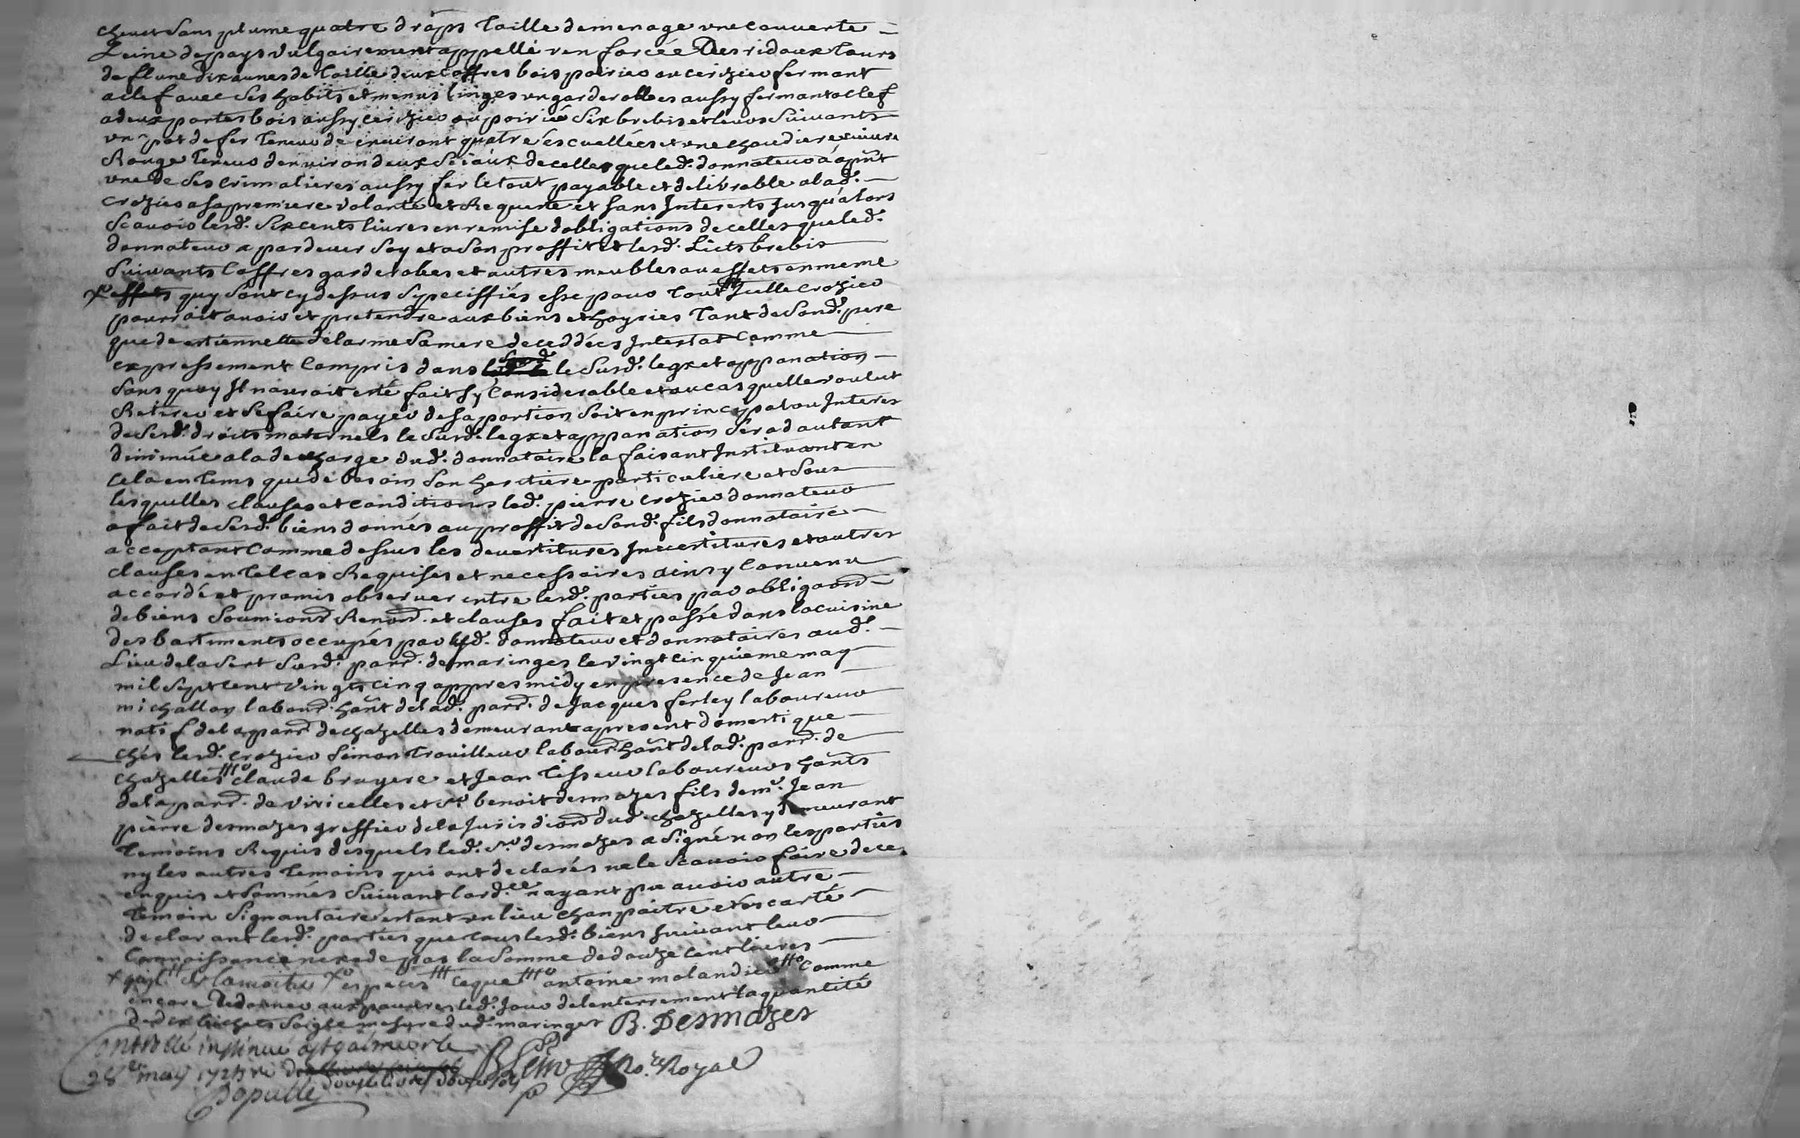 chevet sans plume quatre draps toille de menage une couverte
Leine de pays vulgairement appellé renforcée Des ridaux tours
de fl une dixaunes de toille deux coffres bois poirier ou cerizier fermant
a clef avec ses habits et menus linges un garderobbes aussy fermant a clef
a deux portes bois aussy cerizier ou poirié Six brebis et leurs Suivants
un pot de fer teneur de environt quatre escuellées et une chaudiere cuivre
Rouge teneur denviron deux Seiaux de celles que led. donnateur a àp̃nt
une de ses crimalieres aussy fer le tout payable et delivrable a lad.
Crozier a sa premiere volonté et Requente et sans Interets Jusquàlors
Scavoir lesd. Six cents livres en remise dobligations de celles que led.
donnateur a pardever Soy et a Son proffit et lesd. Licts brebis
Suivants Coffres garderobes et autres meubles ou effets en meme
xo effets quy Sont cy dessus Sypeciffiés esse pour tout # Julle Crozier
pourrait avoir et pretendre aux biens et hoyries tant de Sond. pere
que de etiennette delarme Sa mere deceddées Intestat Comme
expressement Compris dans le Susd. legz et appanation
Sans quoy Il n'auroit esté fait Sy Considerable et au cas quelle voulut
Retirer et Se faire payer de Sa portion Soit en principal ou Interes
de Sesd. droits maternels le Susd. legz et appanation Sera dautant
diminué a la decharge dud. donnataire la faisant Instituant en
Cela en tems que de besoin Son heritiere particuliere et Sous
lesquelles clauses et conditions led. pierre Crozier donnateur
a fait de Sesd. biens donnés au proffit de Sond. fils donnataire
acceptant Comme dessus les devertitures Invertitures et autres
clauses en tel cas Requises et necessaires ainsy Convenu
accordé et promis observer entre lesd. parties par obligaond
de biens Soumiond Renond. et clauses fait et passé dans la cuisine
des batiments occupés par lesd. donnateur et donnataires aud.
Lieu de la Sert Susd. parr. de maringes le vingt cinquieme may
mil Sept cent vingt cinq appres midy en presence de Jean
michallon labour. hãnt de lad. parr. de Jacques ferley laboureur
natif de la parr. de chazelles demeurant a present domestique
ches lesd. Crozier Simon trouilleur labour. hãnt de lad. parr. de
Chazelles # claude bruyere et Jean tisseur laboureurs hãnts
de la parr. de viricelles et Sr. benoit desmazes fils de mr. Jean
pierre desmazes greffier de la Jurisdiond dud. chazelles y demeurant
temoins Requis desquels led. Sr. desmazes a Signé non les parties
ny les autres temoins qui ont declarés ne le Scavoir faire de ce
enquis et Sommés Suivant lord.ce nayant pu avoir autre
temoin Signantaire estant en lieu champaitre et escarté
declarant lesd. parties que tous lesd. biens Suivant leur
Connoissance nexede pas la Somme de douze cent livres
la moitie xo especes # leque # antoine molandier # Comme
encore de donner aux pauvres led. Jour de lenterrement la quantité
de dix bichets Soigle mesure dud. maringes B. Desmazes
Controllé insinué a St galmier le
28e may 1725 Re
douze livres
No.re Royal
Populle